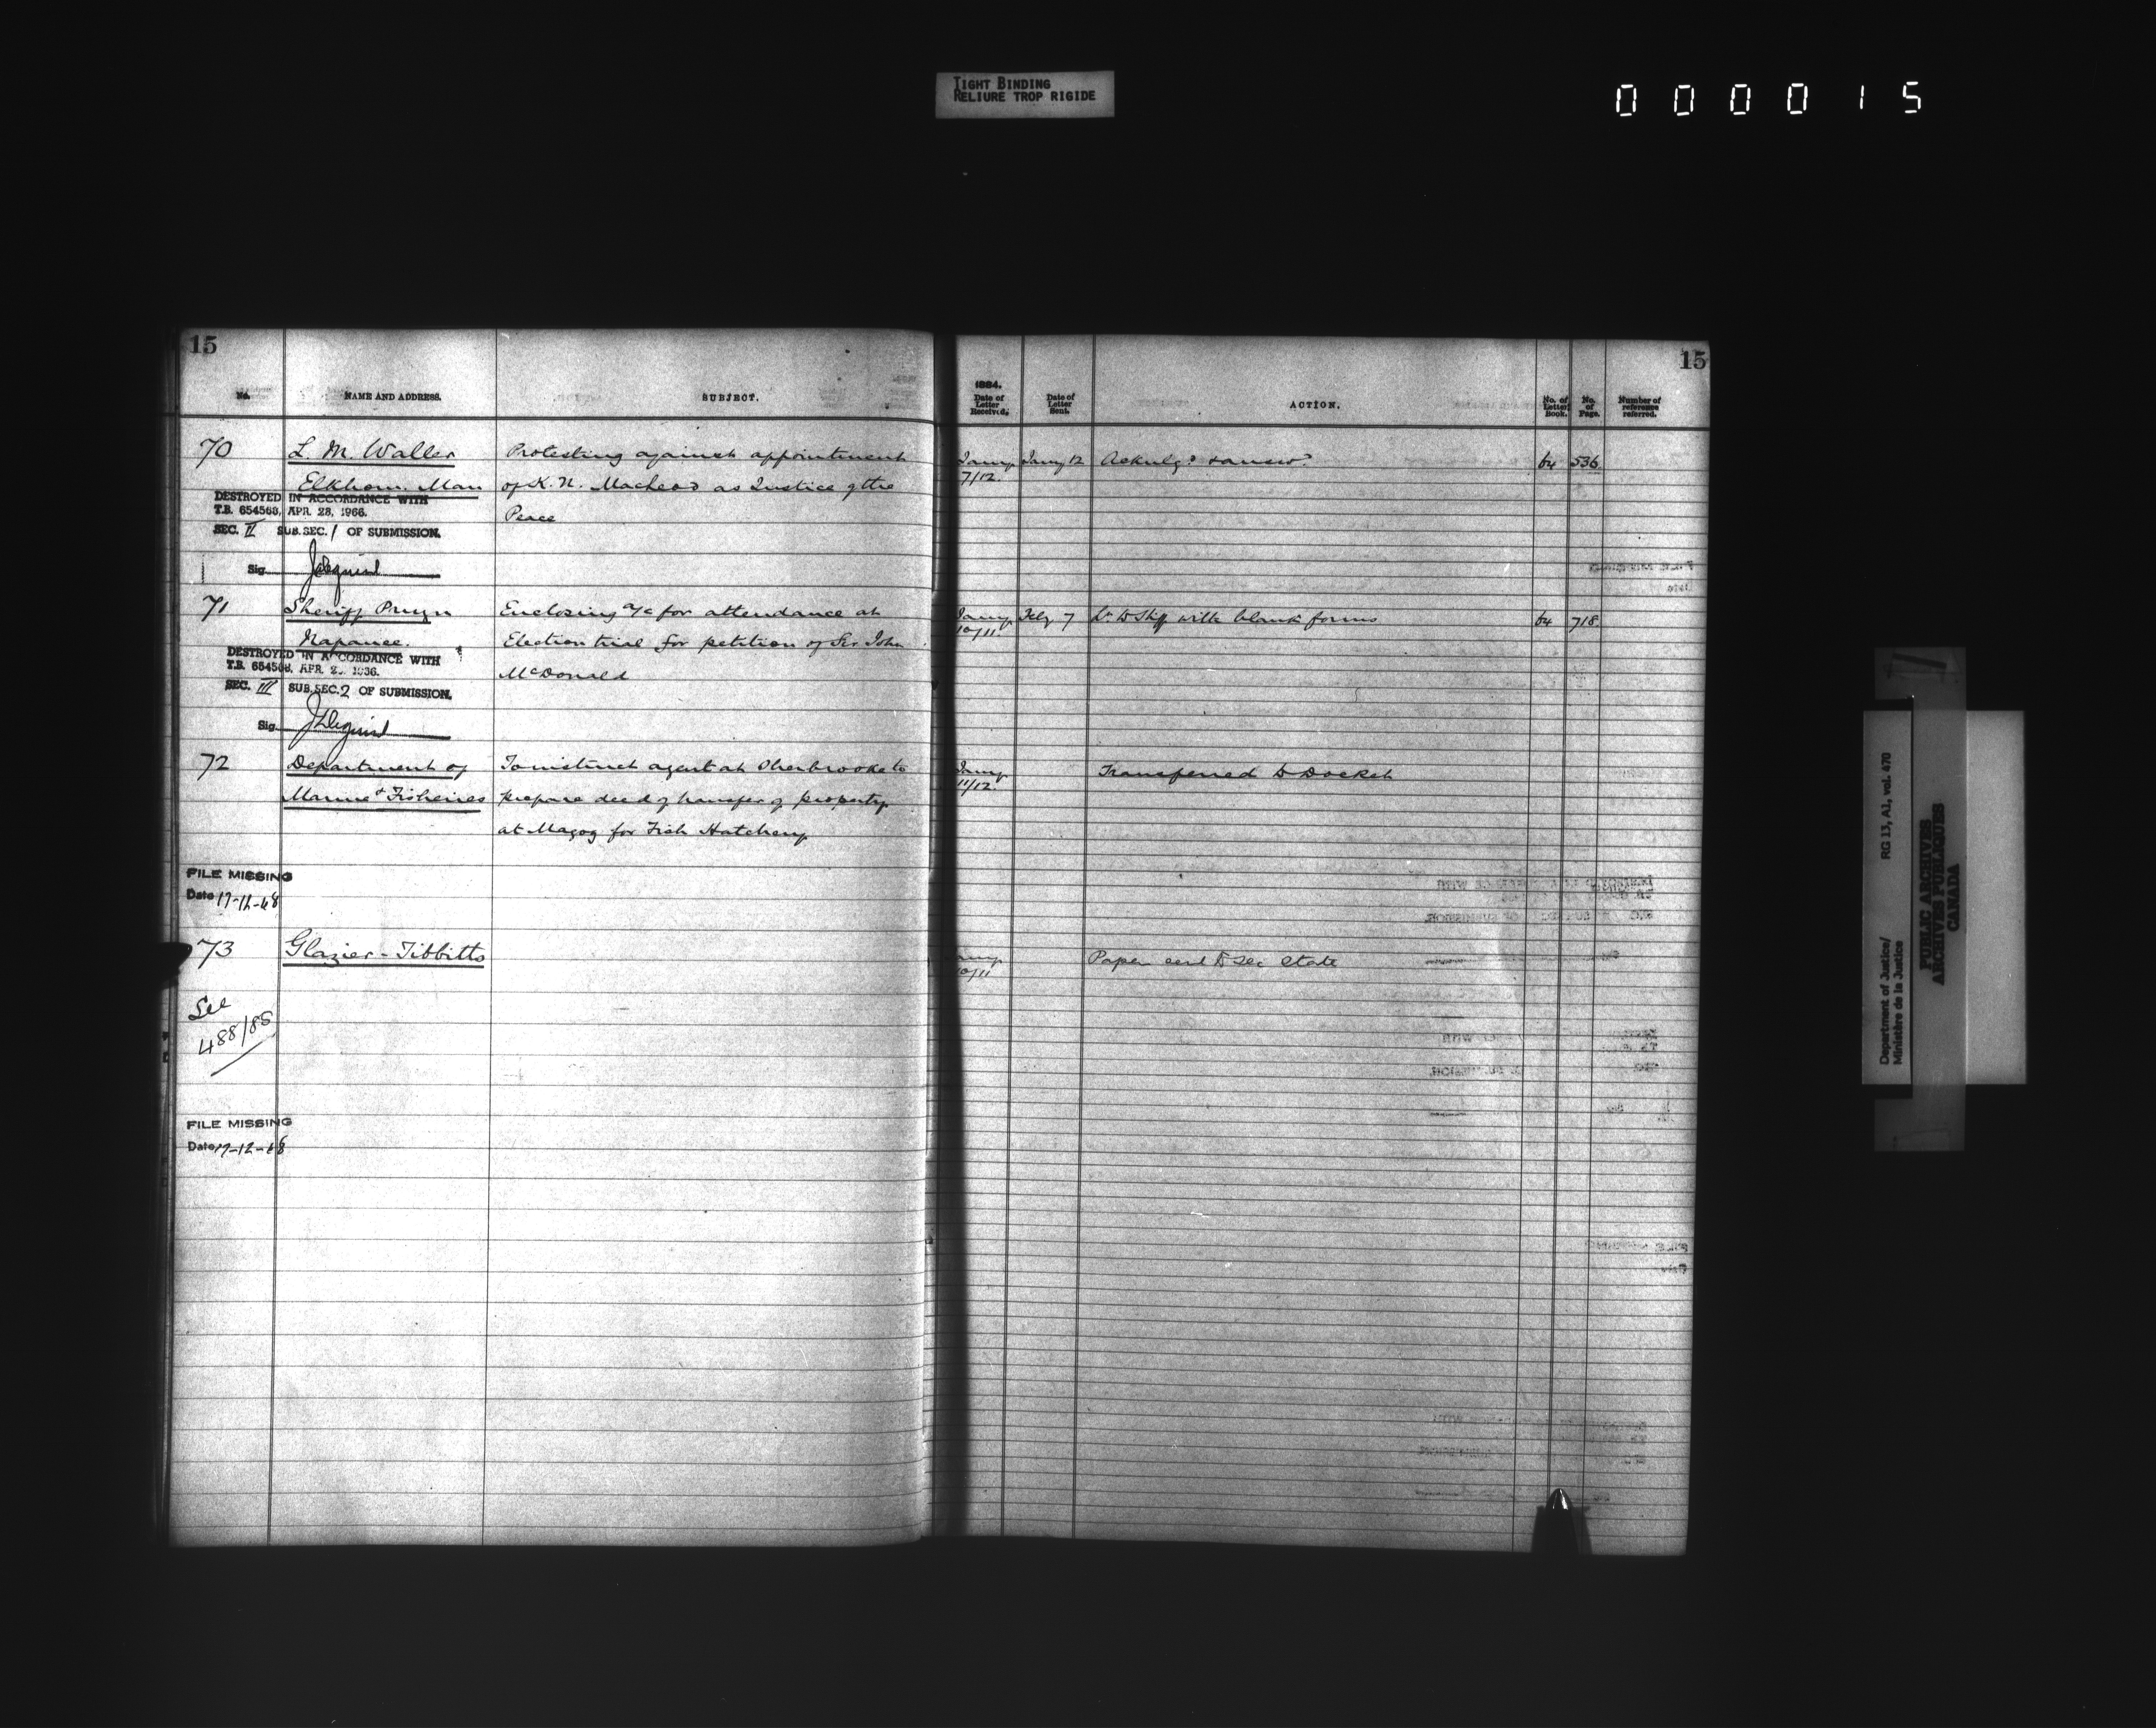 TIGHT BINDING
RELIURE TROP RIGIDE
000015
15
No.
NAME AND ADDRESS.
SUBJECT.
70
L. M. Waller
Elkhorn. Man
DESTROYED IN ACCORDANCE WITH
T.B. 654563, APR. 28, 1966.
SEC. II SUB. SEC. 1 OF SUBMISSION.
Sig.
Protesting against appointment
of K. N. MacLeod as Justice of the
Peace
71
Sheriff Pruyn
Napanee.
DESTROYED IN ACCORDANCE WITH
T.B. 654563, APR. 2
SEC. III SUB. SEC. 2 OF SUBMISSION.
Sig.
Enclosing a/c for attendance at
Election trial for petition of Sir John
McDonald
72
Department of
Marine & Fisheries
To instruct agent at Sherbrooke to
prepare deed of transfer of property
at Magog for Fish Hatchery
FILE MISSING
Date 17-12-68
73
Glazier - Tibbitts
See
488/85
FILE MISSING
Date 17-12-68
15
1884.
Date of Letter Received.
Date of Letter Sent.
ACTION.
No. of Letter Book.
No. of Page.
Number of reference referred.
Jany 7/12. Jany 12 64 536
Jany 10/11 Feby 7 with blank forms 64 718.
Jany 11/12. Transferred to Docket
Jany 10/11 Paper sent to Sec State
Department of Justice/ RG 13, A1, vol. 470
Ministère de la Justice
PUBLIC ARCHIVES
ARCHIVES PUBLIQUES
CANADA